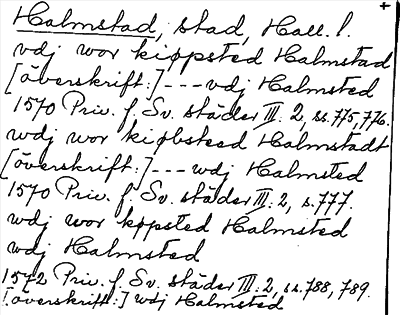 Halmstad, stad, Hall. l. +
vdj wor kiøpsted Halmstad
[överskrift:] --- vdj Halmsted
1570 Priv. f. Sv. städer III: 2, ss. 775, 776.
wdj wor kiøbsteed Halmstadt
[överskrift:] --- wdj Halmsted
1570 Priv. f. Sv. städer III: 2, s. 777.
wdj wor køpsted Halmsted
wdj Halmsted
1572 Priv. f. Sv. städer III: 2, ss. 788, 789.
[överskrift:] wdj Halmsted